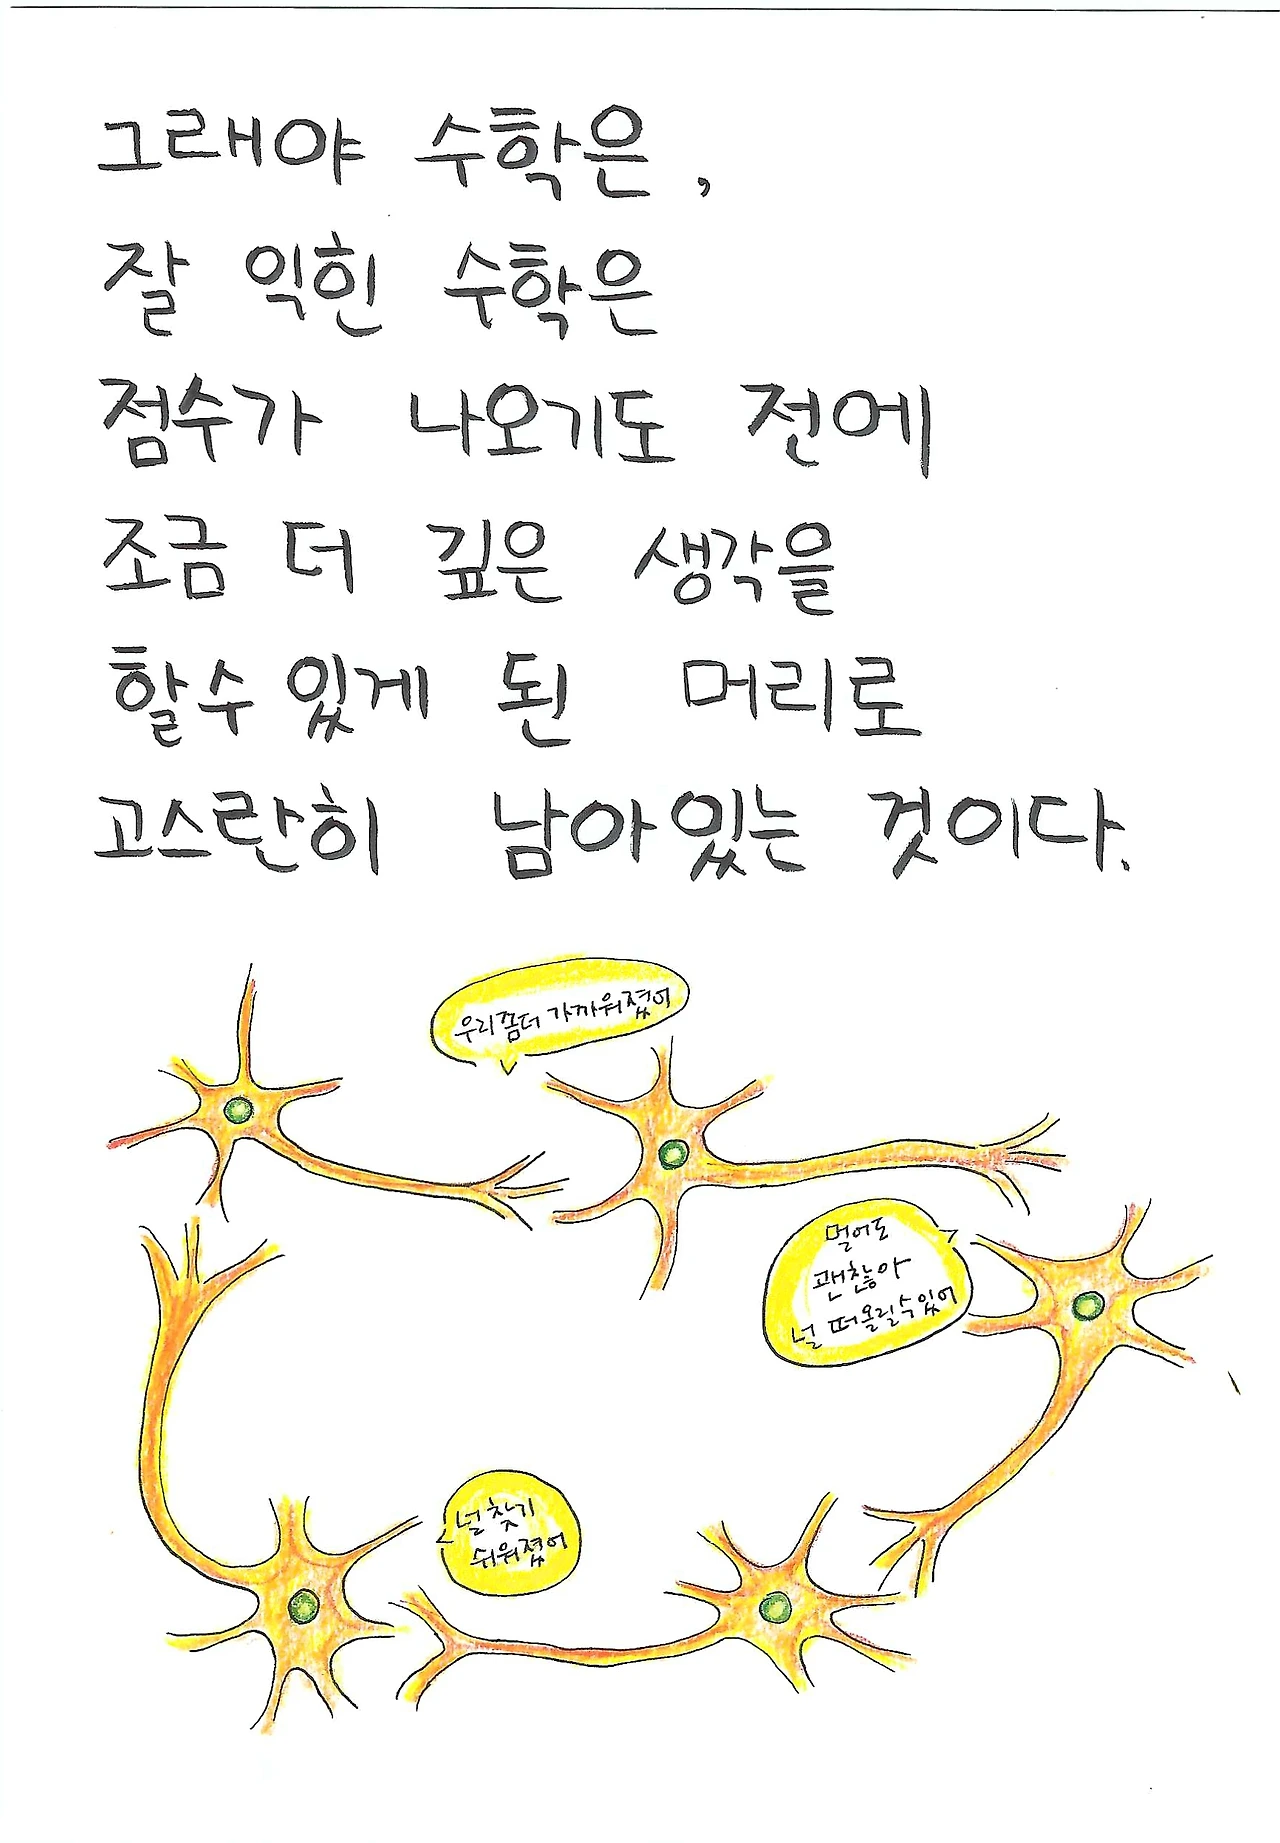 그래야 수학은,
잘 익힌 수학은
점수가 나오기도 전에
조금 더 깊은 생각을
할수있게 된 머리로
고스란히 남아있는 것이다.
우리 좀더 가까워졌어
멀어도
괜찮아
널 떠올릴수있어
널 찾기
쉬워졌어